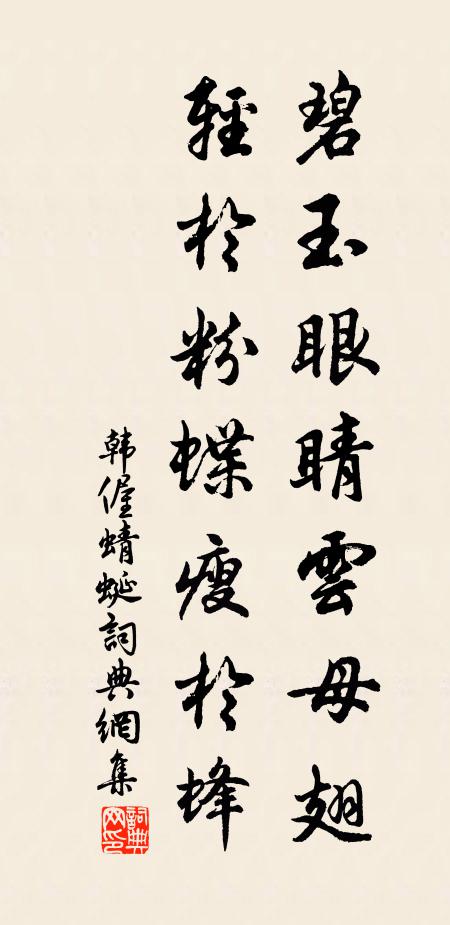 碧玉眼睛雲母翅
輕於粉蝶瘦於蜂
韩偓蜻蜓詞典網集
詞典网印